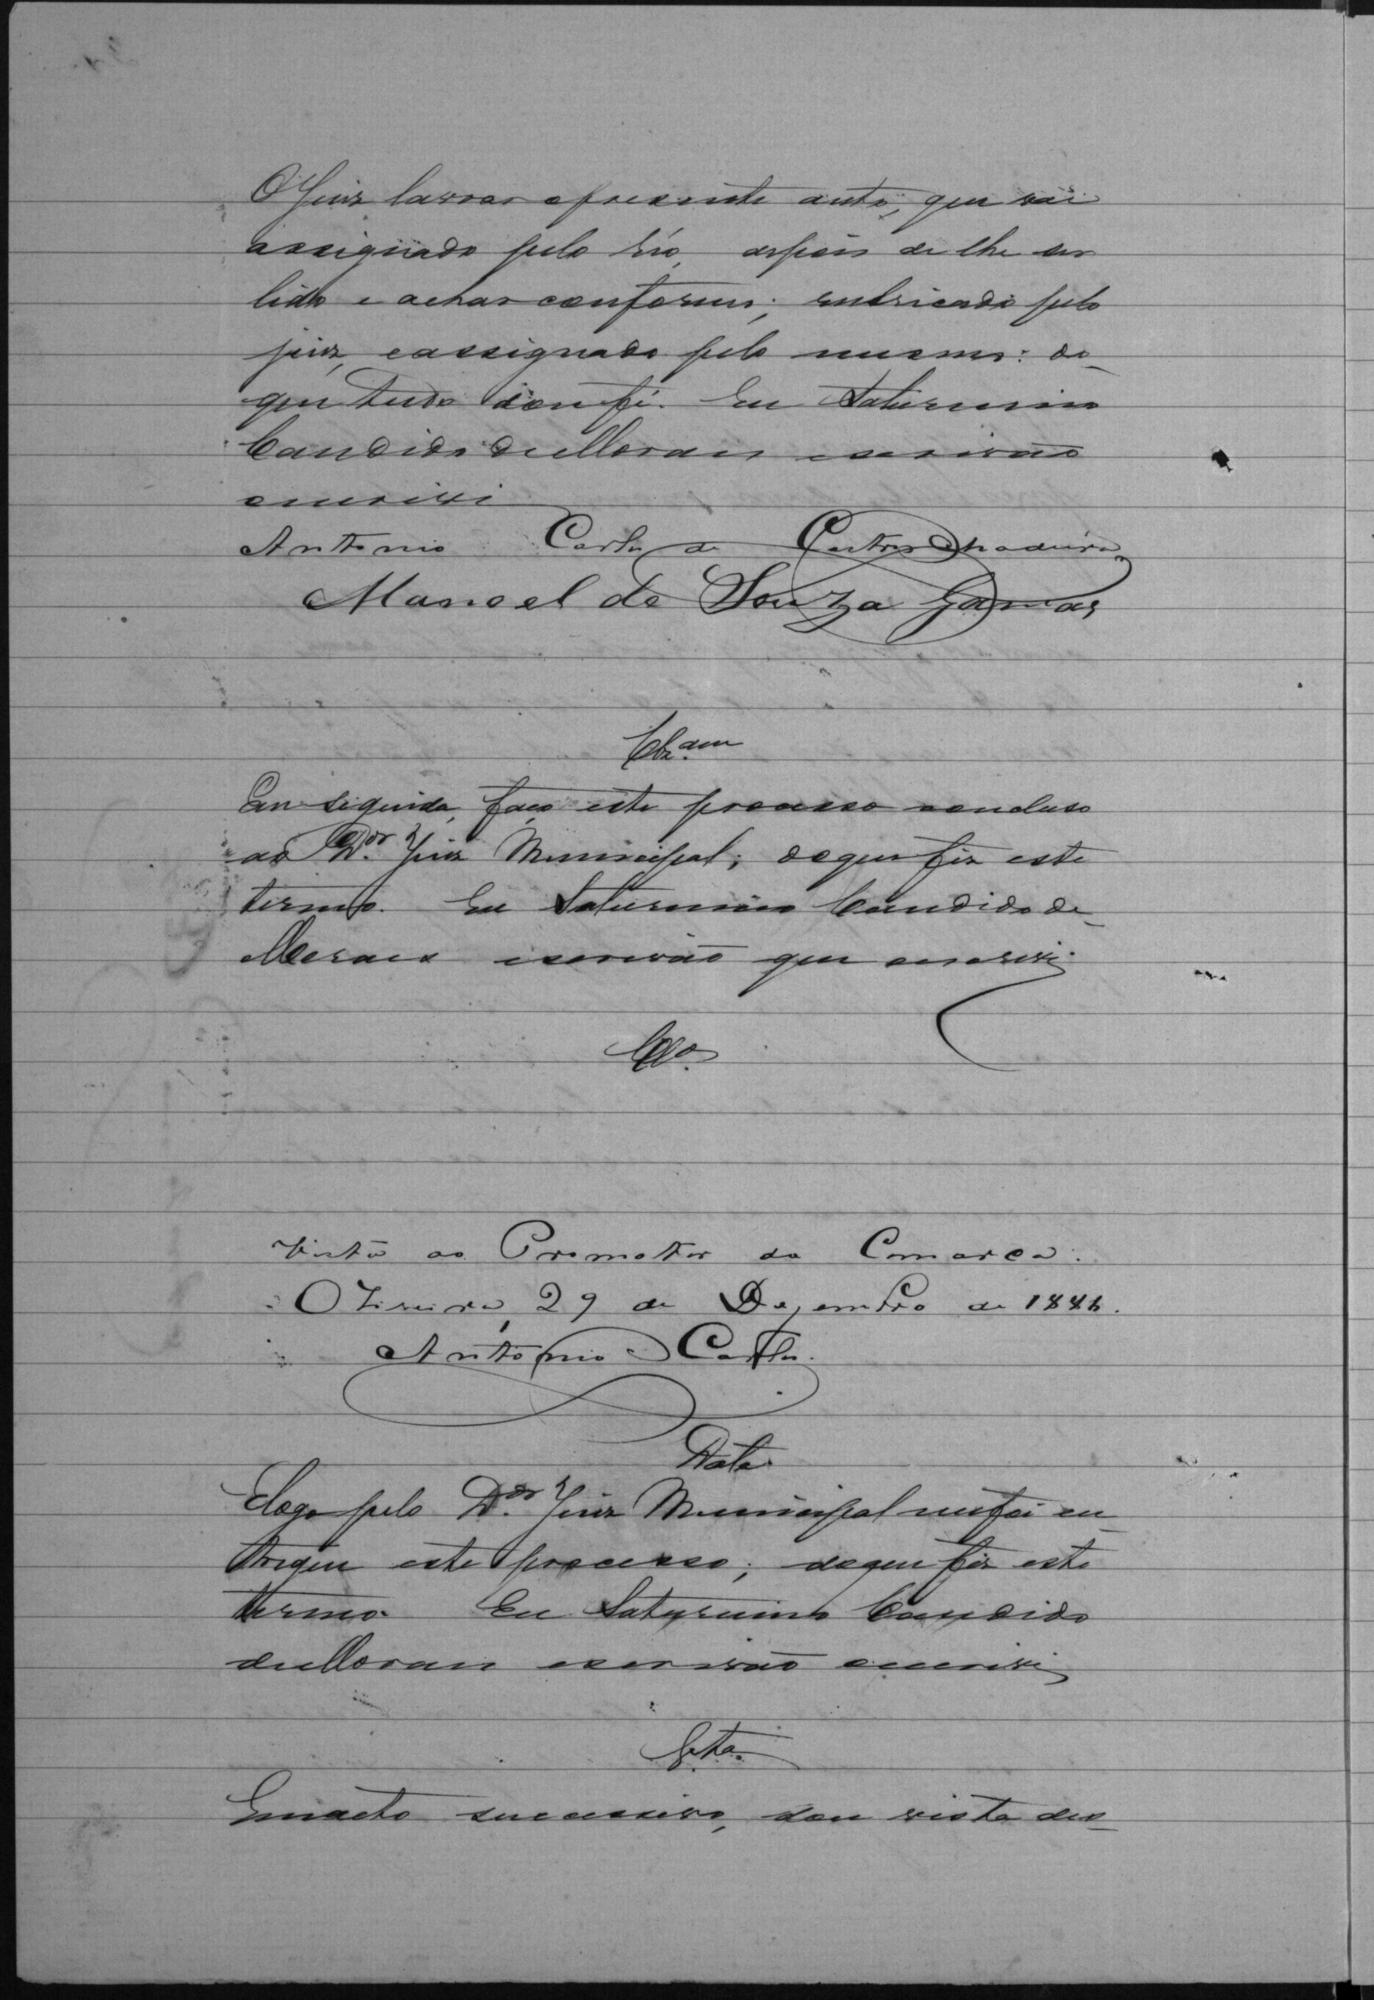 O Juiz lavrar o presente auto, que vai
assignado pelo réo, depois de lhe ser
lido e achar conforme; rubricado pelo
juiz, e assignado pelo mesmo: do
que tudo dou fé. Eu Saturnino
Candido de Moraes escrivão
escrivi
Antonio Carlos de Castro Madeira
Manoel de Souza Gamas
Clz.am
Em seguida, faço este processo concluso
ao D.or Juiz Municipal; do que fiz este
termo. Eu Saturnino Candido de
Moraes escrivão que escrivi.
Cl.o
Vista ao Promotor da Comarca.
Oliveira, 29 de Dezembro de 1886.
Antonio Carlos.
Data
E logo pelo D.or Juiz Municipal me foi en
tregue este processo; do que fiz este
termo. Eu Saturnino Candido
de Moraes escrivão escrivi
V.ta
Em acto successivo, dou vista des